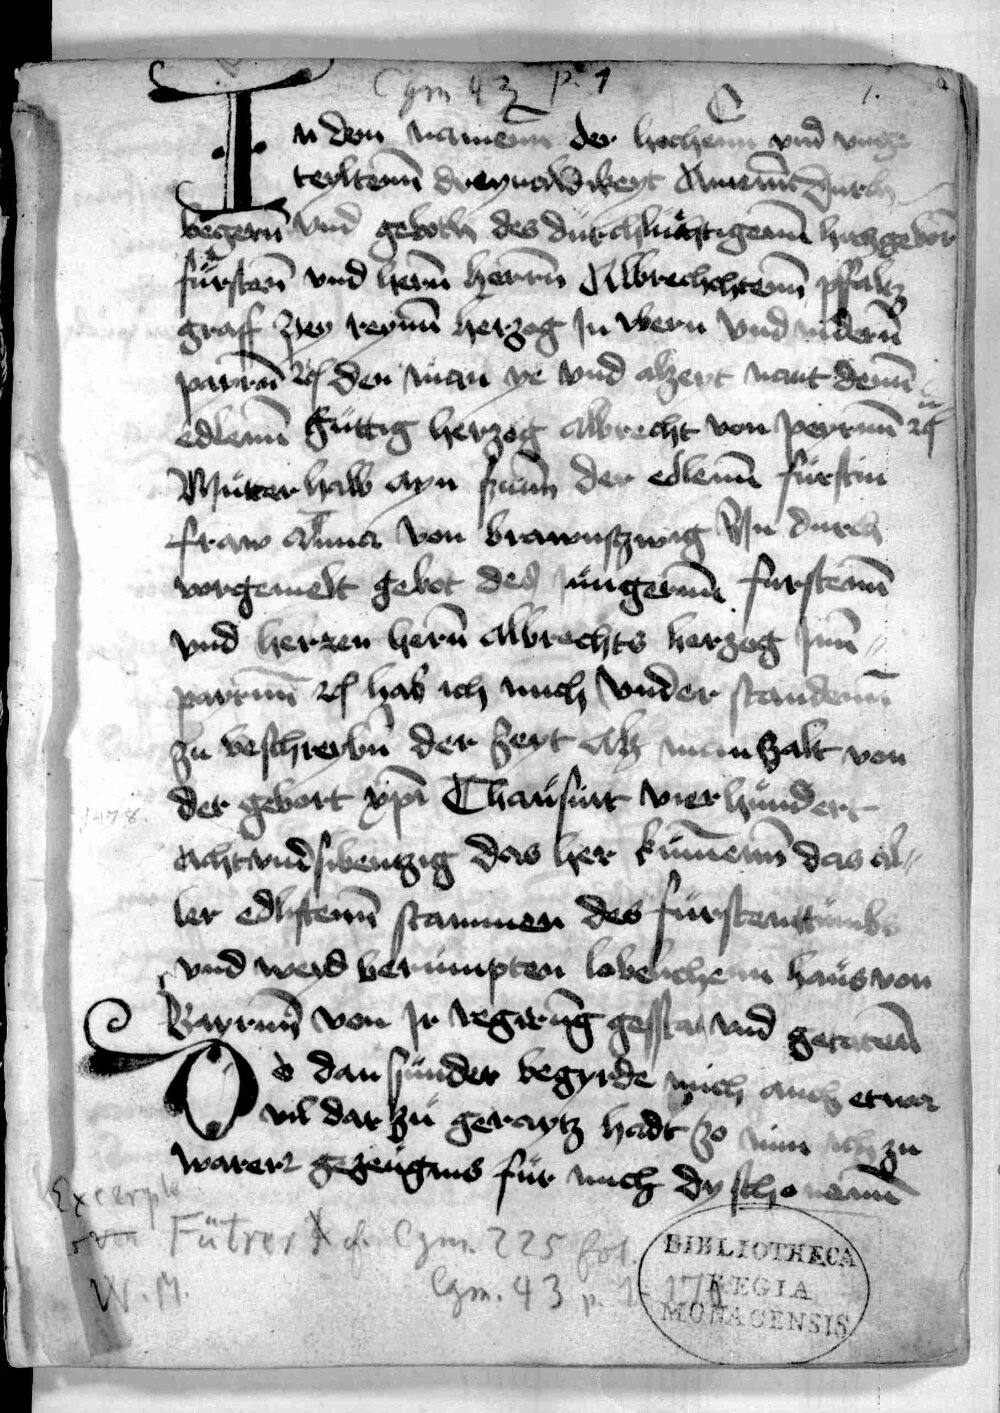 Cgm 43 p. 1
1.
In dem namenn der hochenn vnd vnge
teyltenn dreyualdikeyt Amenn Durch
begern vnd geboth des durchluchtigenn hochgeborn
fürsten vnd hern herrn Albrechchtenn pffaltz
graff pey reynn herzog In obern vnd nidern
payrnn ꝛc den man ye vnd alzeyt nant denn
edlenn güttig herzog Albrecht von peyrnn ꝛc
Mütter halb ayn sunn der edlenn fürstin
fraw Anna von brawnszwig Vn durch
vorgemelt gebot des jüngernn fürstenn
vnd herren hern Albrechts herzog Inn
payrnn ꝛc hab ich mich vnder standenn
zu beschreybn der zeyt Alß man zalt von
der geburt xpi Thausünt vierhündert
1478.
achtvndsibentzig das her kümenn das al
ler edlistenn stammen des fürstenttümbs
vnd weyd berümpten lobelichenn haüs von
Bayrnn von Ir regirung gesta vnd getatenn
So dan sünder begyrde mich auch etwa
vil dar zü geraytz hadt so nim ich zu
warer gezeügnus für mich dy schonenn
Excerpte
von Fütrer cf. Cgm. 225 fol.
W. M.
Cgm. 43 p. 1-
BIBLIOTHECA
REGIA
MONACENSIS